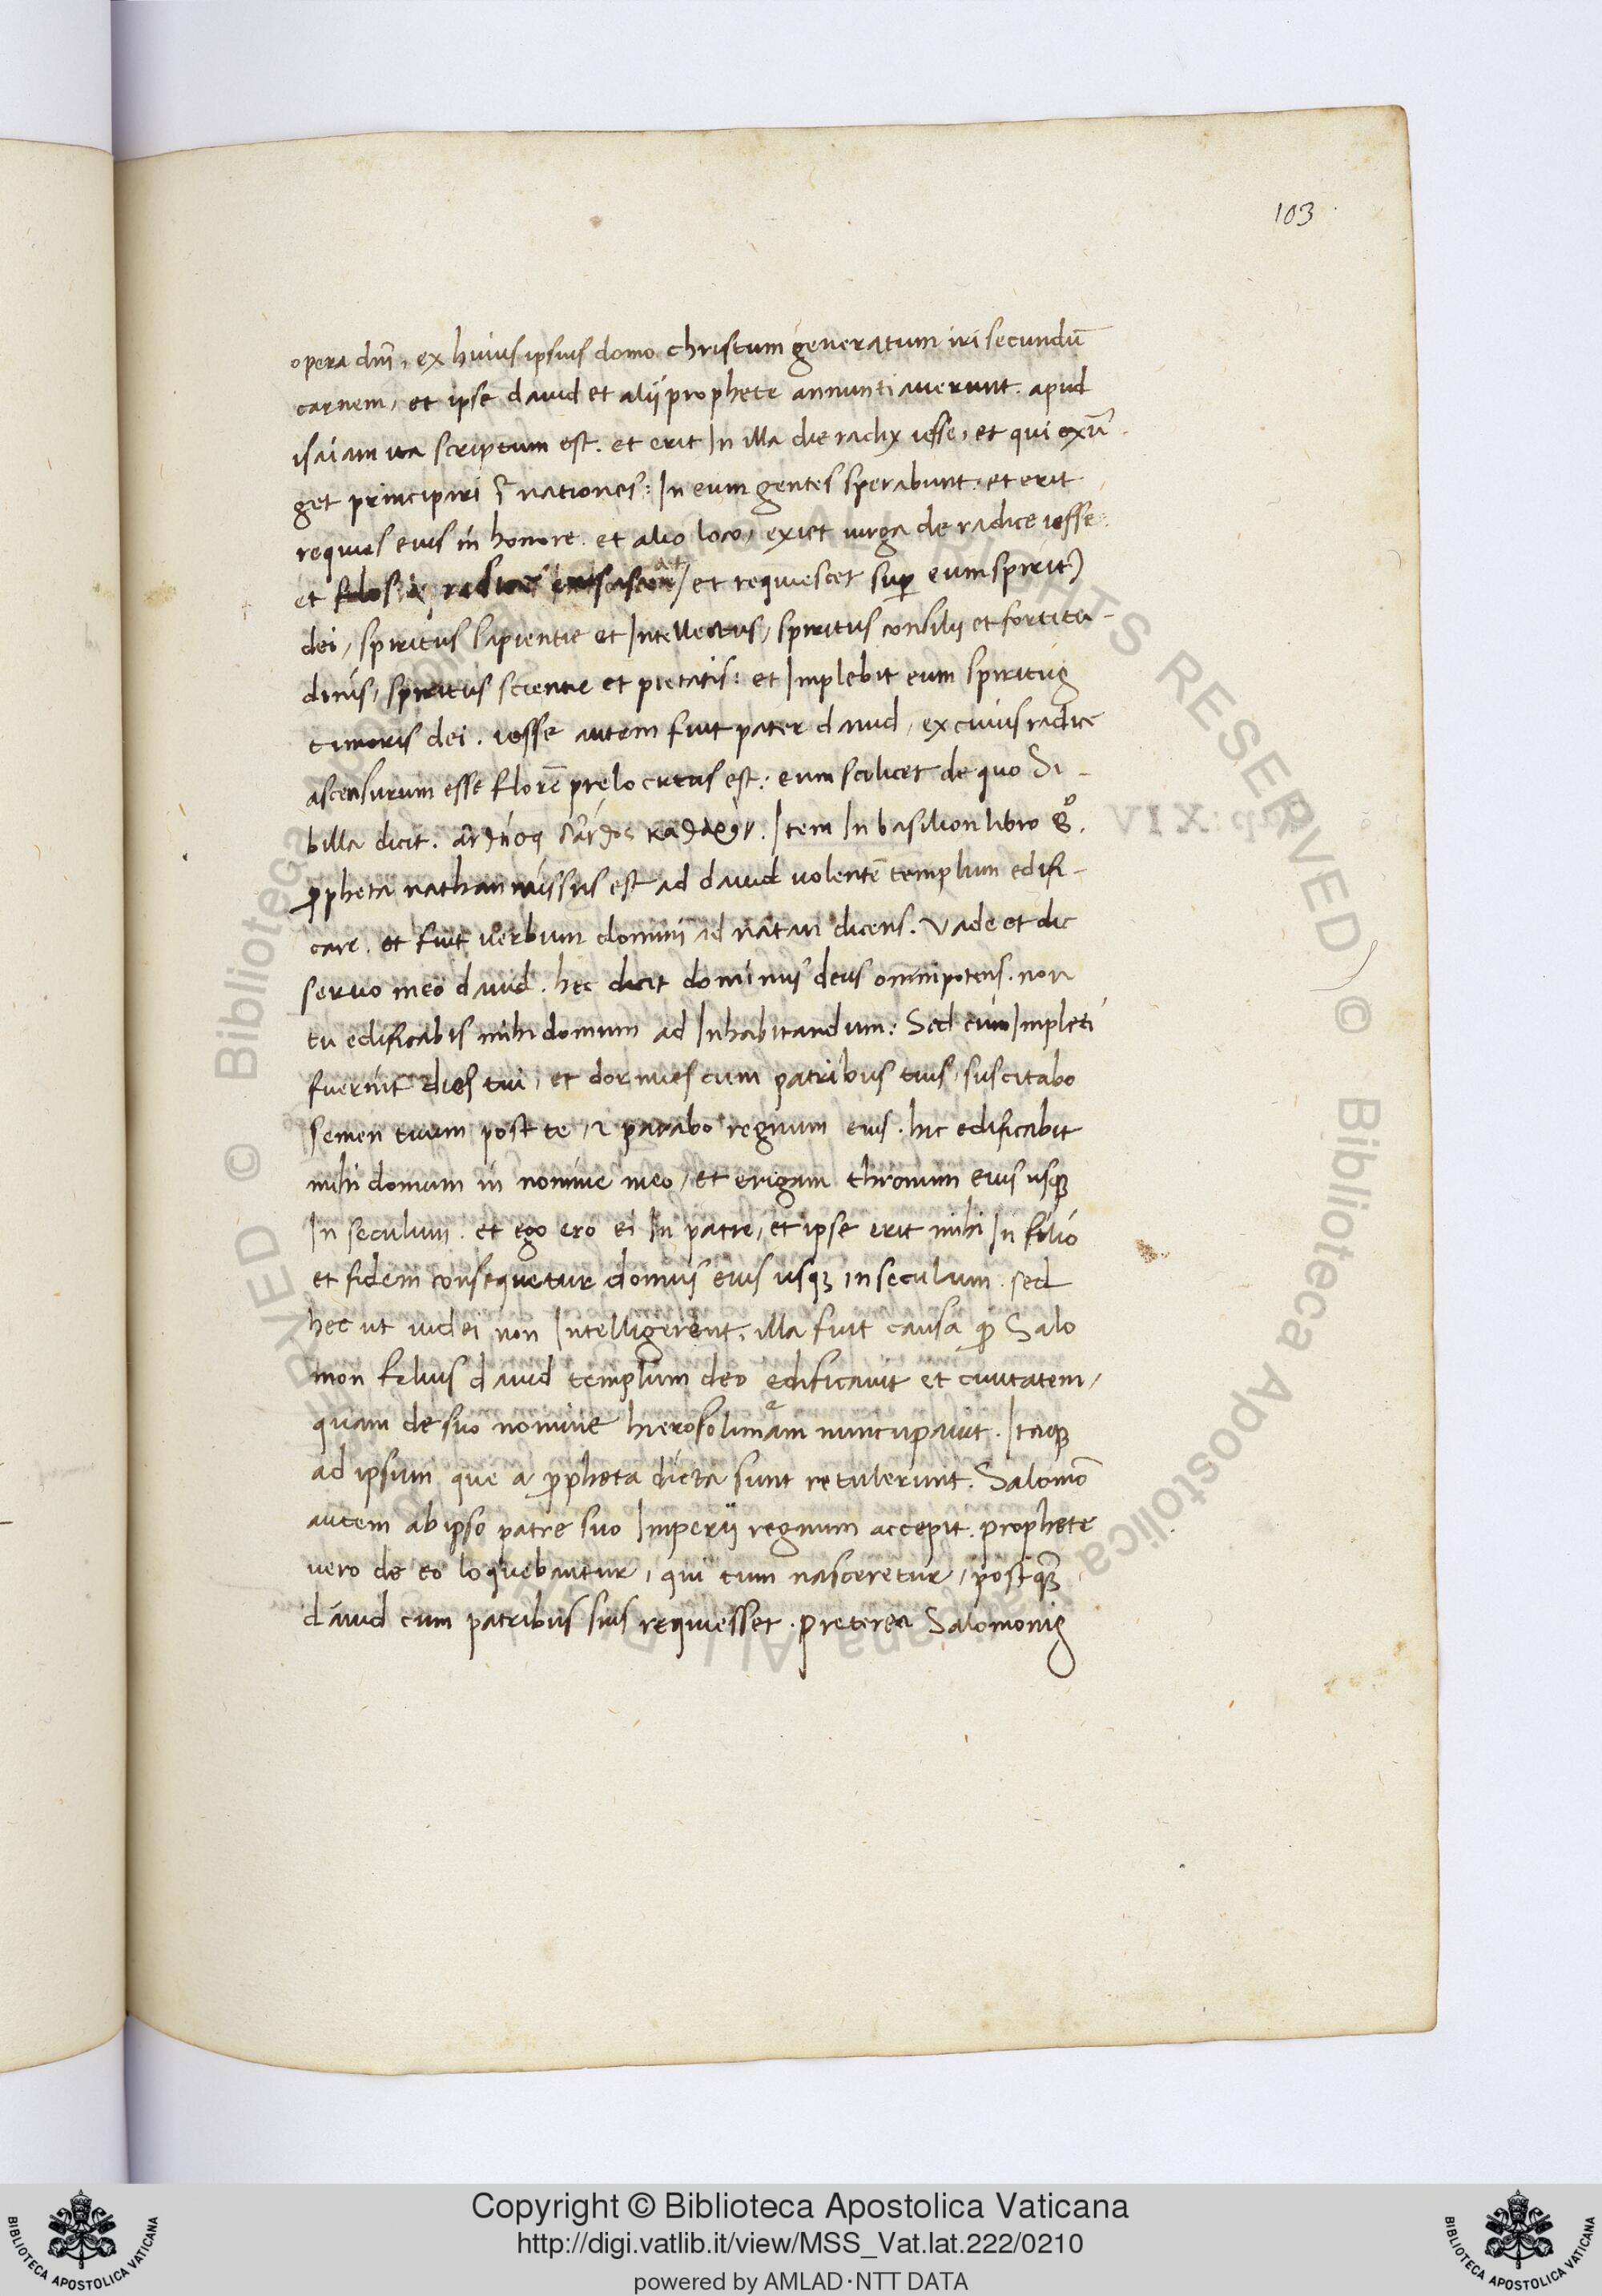 103
opera dn̄i, ex huius ipsius domo christum generatum iri secundū
carnem, et ipse dauid et alij prophete annuntiauerunt. apud
isaiam ita scriptum est. et erit In illa die radix iesse, et qui exur
get principari ī nationes: In eum gentes sperabunt. et erit
requies eius in honore. et alio loco, exiet uirga de radice iesse.
et flos radice eius ascendat, et requiescet sup eum spirit9
dei, spiritus sapientie et Intellectus, spiritus consilij et fortitu-
dinis, spiritus scientie et pietatis: et Implebit eum spiritus
timoris dei. iesse autem fuit pater dauid, ex cuius radice
ascensurum esse florē prelocutus est: eum scilicet de quo Si-
billa dicit. ἀνθήσει δ' ἄνθος καθαρόν. Item In basilion libro
ꝓpheta nathan missus est ad dauid uolentē templum edifi-
care. et fuit uerbum domini ad natan dicens. Vade et dic
seruo meo dauid. hec dicit dominus deus omnipotens. non
tu edificabis mihi domum ad Inhabitandum: Sed cum Impleti
fuerint dies tui, et dormies cum patribus tuis, suscitabo
semen tuum post te, & parabo regnum eius. hic edificabit
mihi domum in nomine meo, et erigam thronum eius usqꝫ
In seculum. et ego ero ei In patre, et ipse erit mihi In filio
et fidem consequetur domus eius usqꝫ in seculum. sed
hec ut iudei non Intelligerent, illa fuit causa ꝙ Salo
mon filius dauid templum deo edificauit et ciuitatem,
quam de suo nomine hierosolimam nuncupauit. Itaqꝫ
ad ipsum que a ꝓpheta dicta sunt retulerunt. Salomō
autem ab ipso patre suo Imperij regnum accepit. prophete
uero de eo loquebantur, qui tum nasceretur, postqꝫ
dauid cum patribus suis requiesset. preterea Salomonis
Copyright © Biblioteca Apostolica Vaticana
http://digi.vatlib.it/view/MSS_Vat.lat.222/0210
powered by AMLAD·NTT DATA